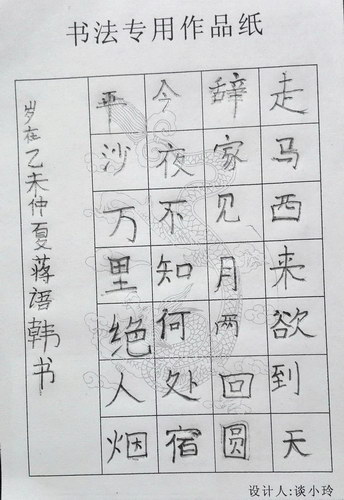 书法专用作品纸
走马西来欲到天
辞家见月两回圆
今夜不知何处宿
平沙万里绝人烟
岁在乙未仲夏蒋语韩书
设计人:谈小玲